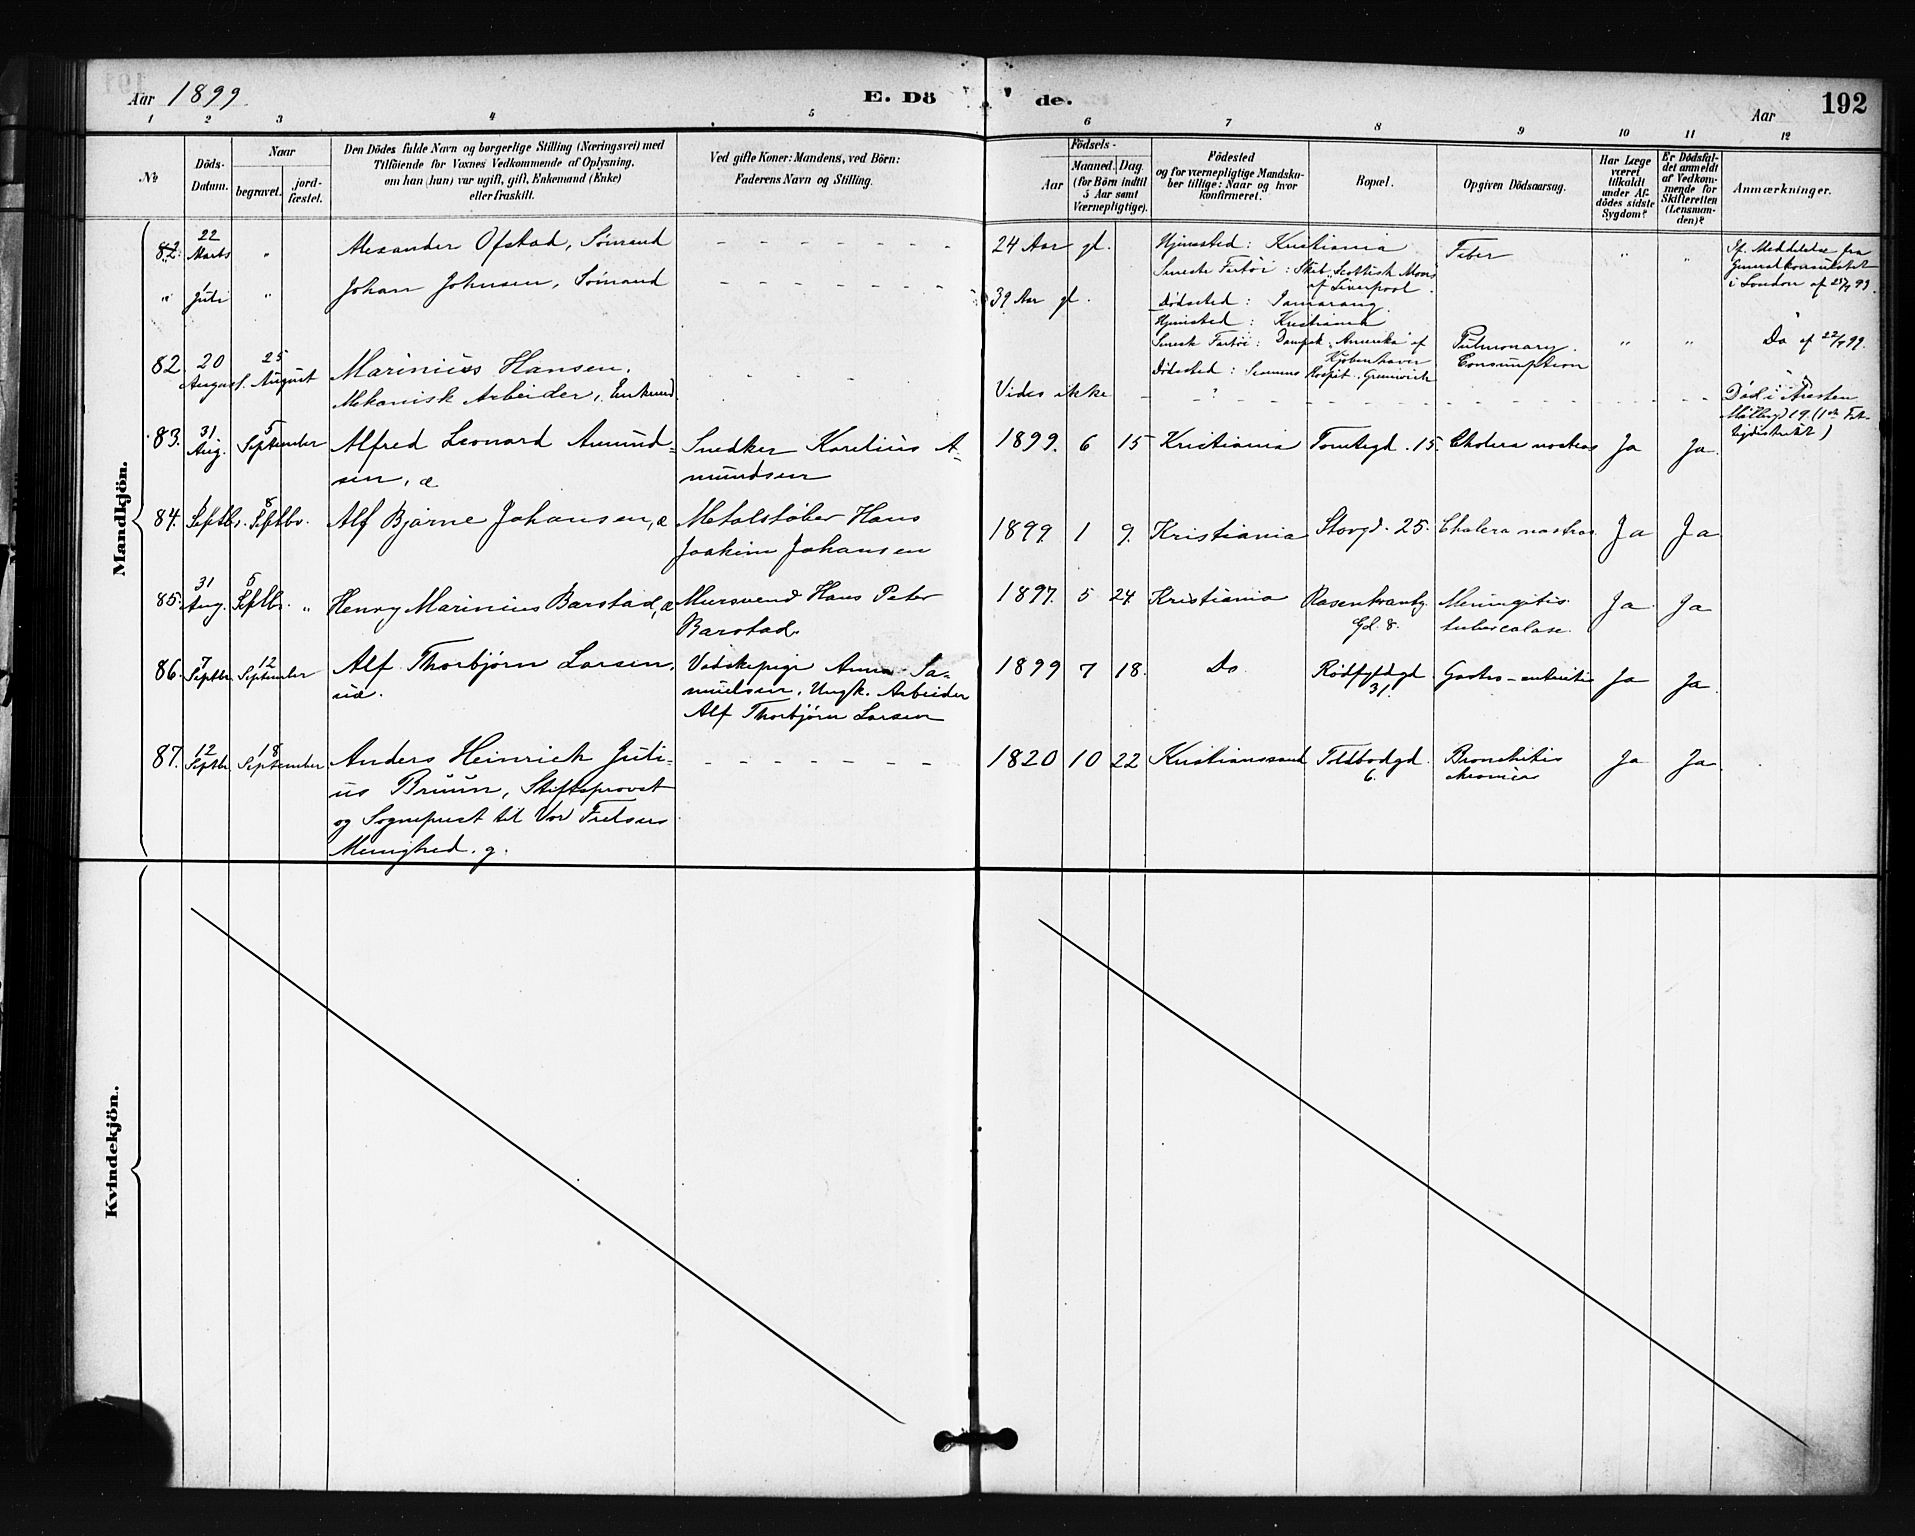 Aar 1899.
E. Dö
de.
Aar
192
1 2 3 4 5 6 7 8 9 10 11 12
No
Döds-
Datum.
Naar
begravet.
jord-
fæstet.
Den Dödes fulde Navn og borgerlige Stilling (Næringsvei) med
Tilföiende for Voxnes Vedkommende af Oplysning,
om han (hun) var ugift, gift, Enkemand (Enke)
eller fraskilt.
Ved gifte Koner: Mandens, ved Börn:
Faderens Navn og Stilling.
Födsels-
Aar
Maaned. Dag.
(for Börn indtil
5 Aar samt
Værnepligtige).
Födested
og for værnepligtige Mandsku-
ber tillige: Naar og hvor
konfirmeret.
Bopæl.
Opgiven Dödsaarsag.
Har Læge
været
tilkaldt
under Af-
dödes sidste
Sygdom?
Er Dödsfal-
det anmeldt
af Vedkom-
mende for
Skifteretten
(Lensman-
den)?
Anmærkninger.
Mandkjön.
82. 22 Marts " Alexander Ofstad, Sömand
24 Aar gl. Hjemsted: Kristiania
Seneste Fartöi: Skib "Scottish Moors"
af Liverpool.
Dödssted: Samarang.
Feber " "
If. Meddelelse fra
Generalkonsulatet
i London af
" 1 Juli " Johan Johnsen, Sömand
39 Aar gl. Hjemsted: Kristiania
Seneste Fartöi: Dampsk. "Amerika" af
Kjöbenhavn
Dödssted: Seamens Hospit. Greenwich
Pulmonary
Consumption " " Do af 22/ 99.
82. 20 August. 25 August Marinius Hansen,
Mekanisk Arbeider, Enkemd.
Vides ikke
Död i Aresten
Möllergd 19.
83. 31 Aug. 5 September Alfred Leonard Amund-
sen, æ
Snedker Karelius A-
mundsen
1899. 6 15 Kristiania Tomtegd. 15. Cholera nostras Ja Ja.
84. 1 Septbr. 8 Septbr. Alf Bjarne Johansen, æ
Metalstøber Hans
Joakim Johansen
1899. 1 9. Kristiania Storgd. 25. Cholera nostras. Ja Ja
85. 31 Aug. 5 Septbr. " Henry Marinius Barstad, æ
Mursvend Hans Peter
Barstad.
1897. 5 24. Kristiania Rosenkrantz
Gd. 8.
Meningitis
tuberculose. Ja Ja
86. 7 Septbr. 12 September Alf Thorbjörn Larsen,
uæ.
Vadskepige Anna Sa-
muelsen, Ungk. Arbeider
Alf Thorbjörn Larsen
1899 7 18. Do Rödfyldgd
31.
Gastro-enterit Ja Ja.
87. 12 Septbr. 18 September Anders Heinrich Juli-
us Bruun, Stiftsprovst
og Sogneprest til Vor Frelsers
Menighed. g.
1820 10 22 Kristianssand Toldbodgd.
6.
Bronchitis
chronica Ja Ja.
Kvindekjön.